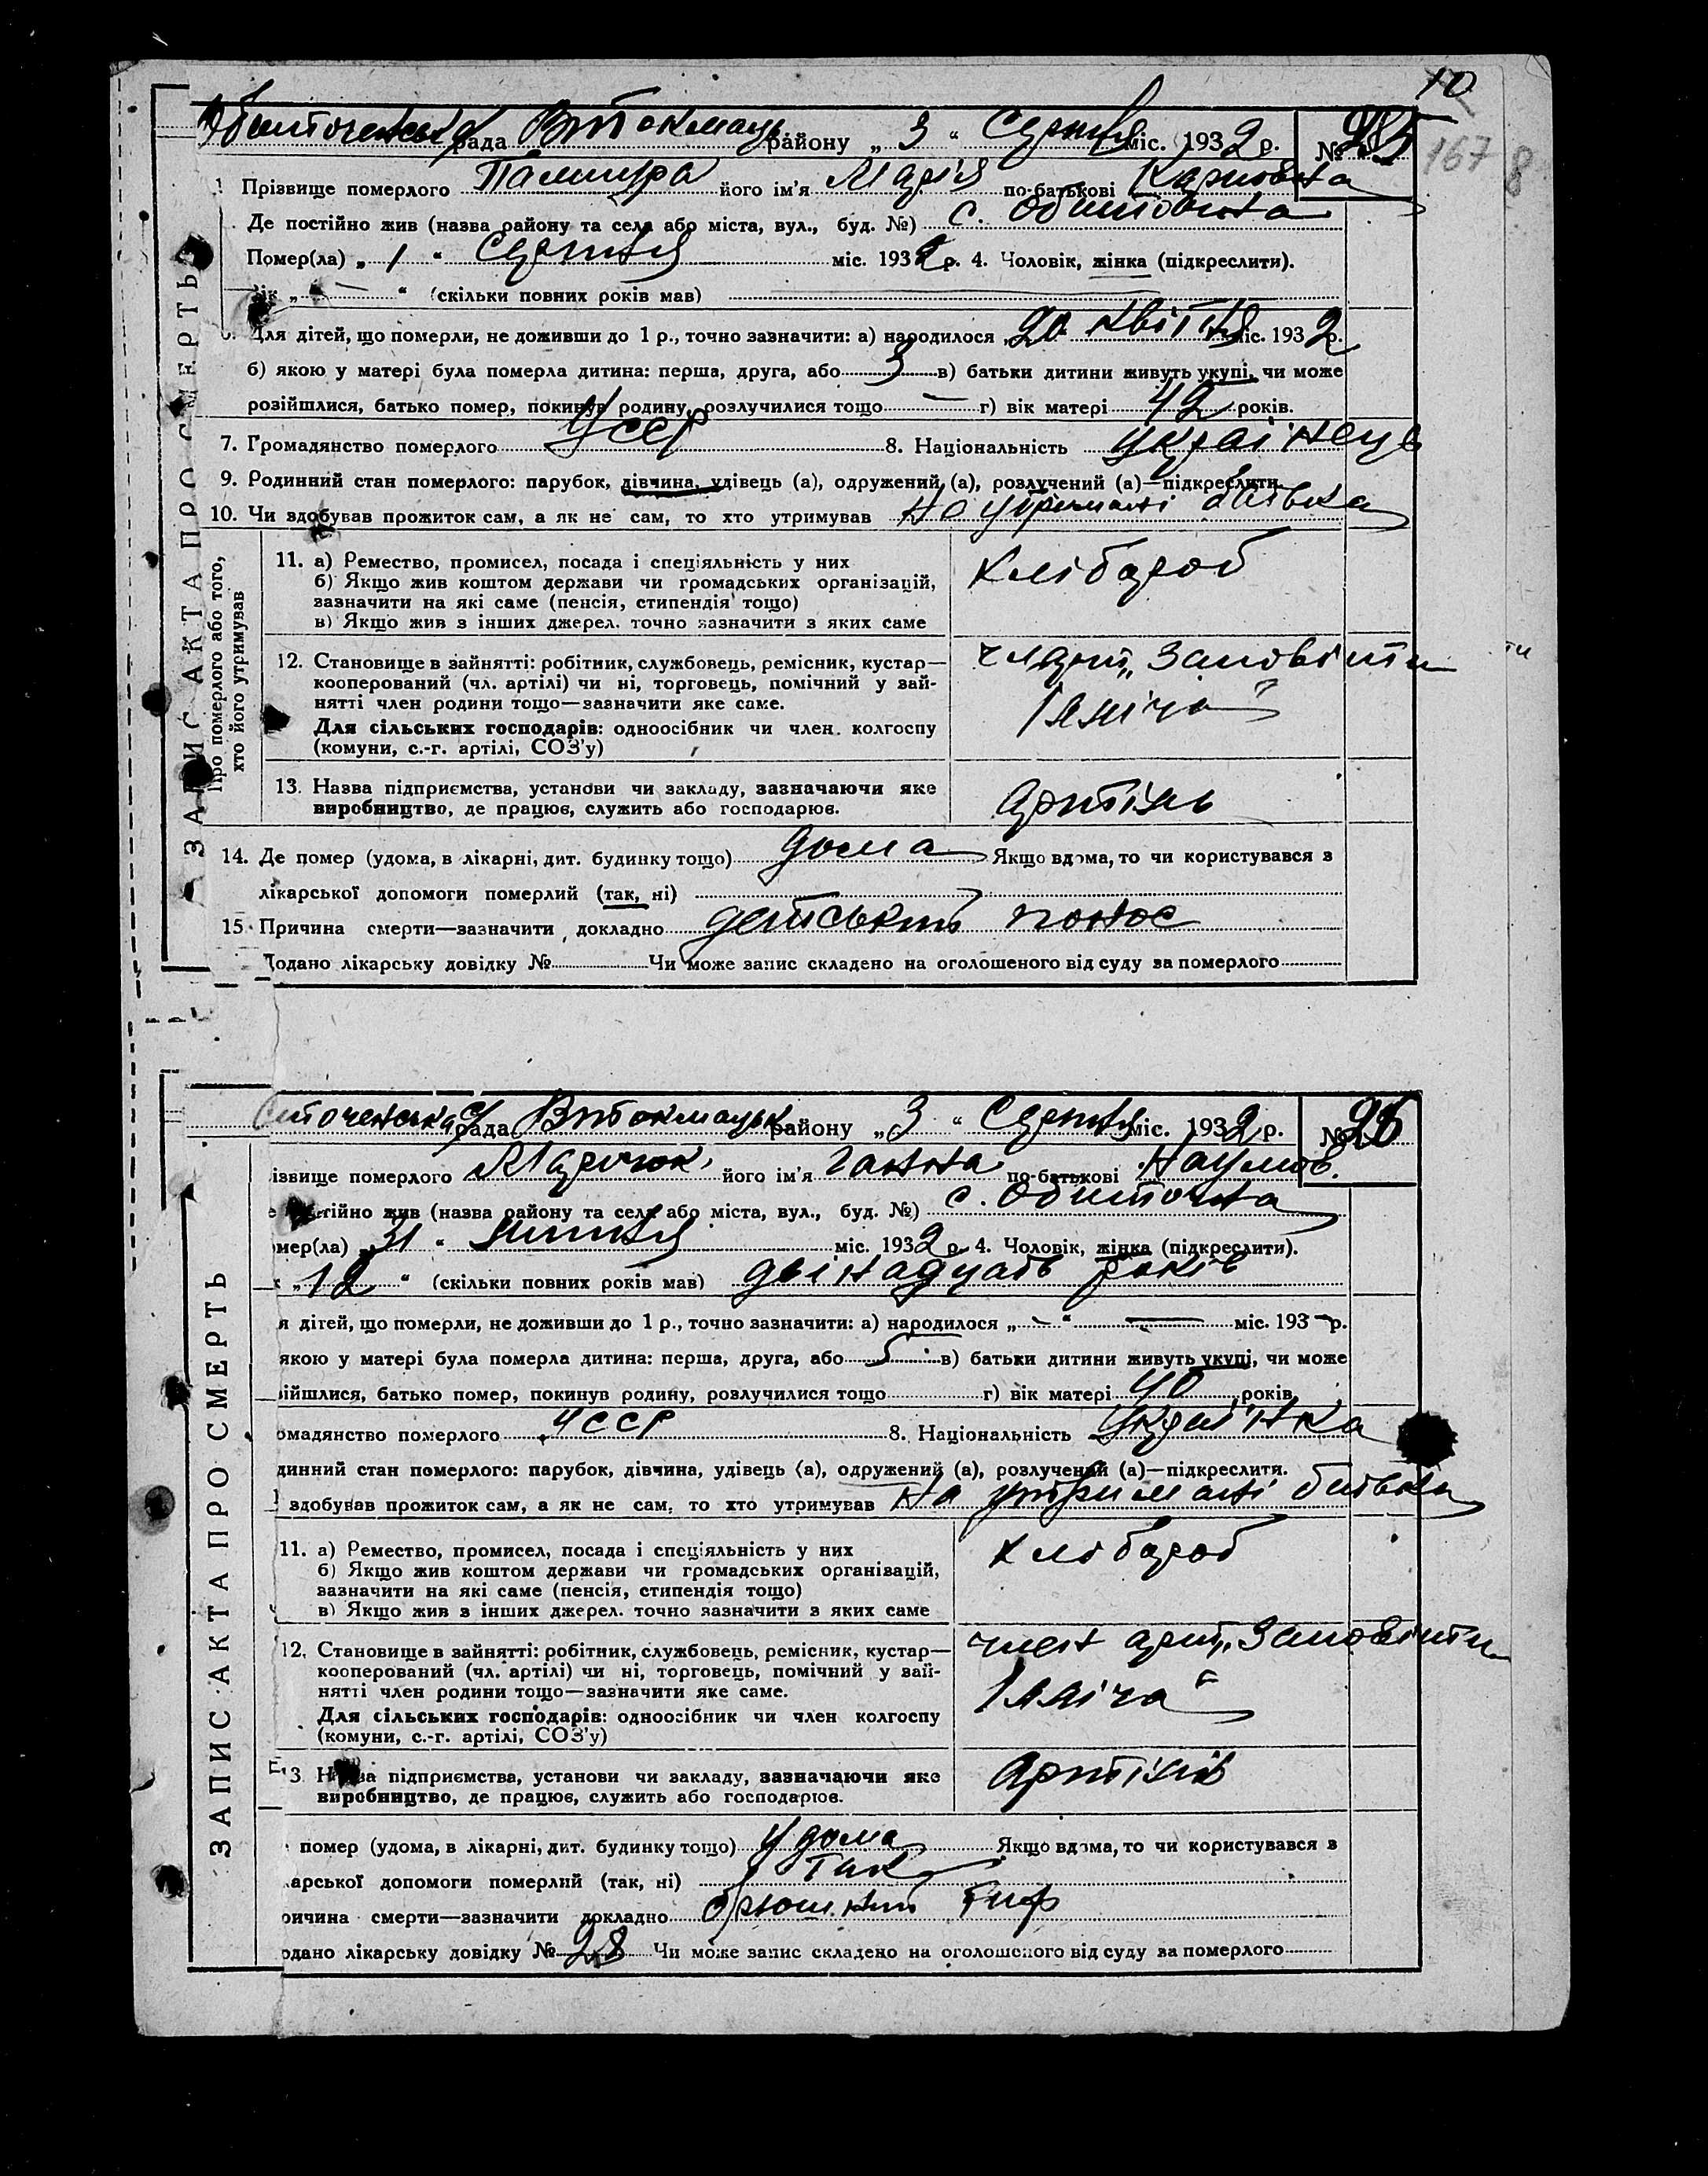 10
Обиточенська рада В-Токмацьк. району „3“ Серпня міс. 1932 р. № 25
167 8
Прізвище померлого його ім’я Марія по-батькові Карпівна
Де постійно жив (назва району та села або міста, вул., буд. №) с. Обиточна
Помер(ла) „1“ Серпня міс. 1932 р. 4. Чоловік, жінка (підкреслити).
Вік „—“ (скільки повних років мав)
Для дітей, що померли, не доживши до 1 р., точно зазначити: а) народилося „20“ квітня міс. 1932 р.
б) якою у матері була померла дитина: перша, друга, або 3 в) батьки дитини живуть укупі, чи може
розійшлися, батько помер, покинув родину, розлучилися тощо — г) вік матері 42 років.
7. Громадянство померлого УССР 8. Національність українець
9. Родинний стан померлого: парубок, дівчина, удівець (а), одружений (а), розлучений (а)—підкреслити
10. Чи здобував прожиток сам, а як не сам, то хто утримував на утримані батька
ЗАПИС АКТА ПРО СМЕРТЬ
Про померлого або того,
хто його утримував
11. а) Ремество, промисел, посада і спеціяльність у них
б) Якщо жив коштом держави чи громадських організацій,
зазначити на які саме (пенсія, стипендія тощо)
в) Якщо жив з інших джерел. точно зазначити з яких саме
хлібороб
12. Становище в зайнятті: робітник, службовець, ремісник, кустар—
кооперований (чл. артілі) чи ні, торговець, помічний у зай-
нятті член родини тощо—зазначити яке саме.
Для сільських господарів: одноосібник чи член колгоспу
(комуни, с.-г. артілі, СОЗ’у)
чл арт. „Заповіти
Ілліча“
13. Назва підприємства, установи чи закладу, зазначаючи яке
виробництво, де працює, служить або господарює.
Артіль
14. Де помер (удома, в лікарні, дит. будинку тощо) дома Якщо вдома, то чи користувався з
лікарської допомоги померлий (так, ні)
15. Причина смерти—зазначити докладно детський понос
Додано лікарську довідку № Чи може запис складено на оголошеного від суду за померлого
иточенська рада В-Токмацьк. району „3“ Серпня міс. 1932 р. № 26
ізвище померлого Марчюк його ім’я Ганна по-батькові Наумов.
тійно жив (назва району та села або міста, вул., буд. №) с. Обиточна
мер(ла) „31“ липня міс. 1932 р. 4. Чоловік, жінка (підкреслити).
к „12“ (скільки повних років мав) двінадцать років
я дітей, що померли, не доживши до 1 р., точно зазначити: а) народилося „—“ — міс. 193— р.
якою у матері була померла дитина: перша, друга, або 5 в) батьки дитини живуть укупі, чи може
ійшлися, батько помер, покинув родину, розлучилися тощо г) вік матері 40 років
омадянство померлого УССР 8. Національність Українка
динний стан померлого: парубок, дівчина, удівець (а), одружений (а), розлучений (а)—підкреслити.
здобував прожиток сам, а як не сам, то хто утримував на утримані батька
ЗАПИС АКТА ПРО СМЕРТЬ
11. а) Ремество, промисел, посада і спеціяльність у них
б) Якщо жив коштом держави чи громадських організацій,
зазначити на які саме (пенсія, стипендія тощо)
в) Якщо жив з інших джерел. точно зазначити з яких саме
хлібороб
12. Становище в зайнятті: робітник, службовець, ремісник, кустар—
кооперований (чл. артілі) чи ні, торговець, помічний у зай-
нятті член родини тощо—зазначити яке саме.
Для сільських господарів: одноосібник чи член колгоспу
(комуни, с.-г. артілі, СОЗ’у)
член арт. „Заповіти
Ілліча“
3. Назва підприємства, установи чи закладу, зазначаючи яке
виробництво, де працює, служить або господарює.
Артіль
помер (удома, в лікарні, дит. будинку тощо) у дома Якщо вдома, то чи користувався з
карської допомоги померлий (так, ні) так
ричина смерти—зазначити докладно брюшний тиф
одано лікарську довідку № 28 Чи може запис складено на оголошеного від суду за померлого